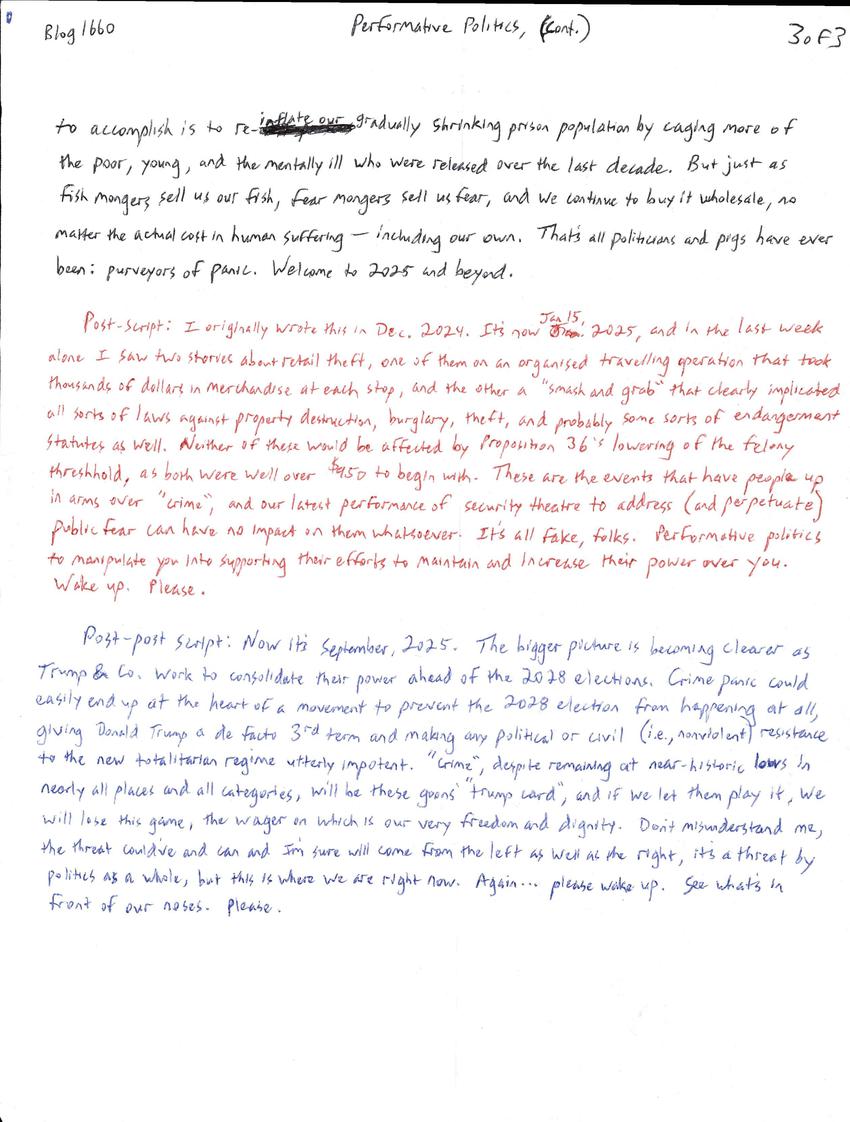 Blog 1660
Performative Politics, (Cont.)
3 of 3
to accomplish is to re-inflate our gradually shrinking prison population by caging more of
the poor, young, and the mentally ill who were released over the last decade. But just as
fish mongers sell us our fish, fear mongers sell us fear, and we continue to buy it wholesale, no
matter the actual cost in human suffering — including our own. That's all politicians and pigs have ever
been: purveyors of panic. Welcome to 2025 and beyond.
Post-script: I originally wrote this in Dec. 2024. It's now Jan 15, 2025, and in the last week
alone I saw two stories about retail theft, one of them on an organised travelling operation that took
thousands of dollars in merchandise at each stop, and the other a "smash and grab" that clearly implicated
all sorts of laws against property destruction, burglary, theft, and probably some sorts of endangerment
statutes as well. Neither of these would be affected by Proposition 36's lowering of the felony
threshhold, as both were well over $950 to begin with. These are the events that have people up
in arms over "crime", and our latest performance of security theatre to address (and perpetuate)
public fear can have no impact on them whatsoever. It's all fake, folks. Performative politics
to manipulate you into supporting their efforts to maintain and increase their power over you.
Wake up. Please.
Post-post script: Now it's September, 2025. The bigger picture is becoming clearer as
Trump & Co. work to consolidate their power ahead of the 2028 elections. Crime panic could
easily end up at the heart of a movement to prevent the 2028 election from happening at all,
giving Donald Trump a de facto 3rd term and making any political or civil (i.e., nonviolent) resistance
to the new totalitarian regime utterly impotent. "Crime", despite remaining at near-historic lows in
nearly all places and all categories, will be these goons' "trump card", and if we let them play it, we
will lose this game, the wager on which is our very freedom and dignity. Don't misunderstand me,
the threat could've and can and I'm sure will come from the left as well as the right, it's a threat by
politics as a whole, but this is where we are right now. Again... please wake up. See what's in
front of our noses. Please.